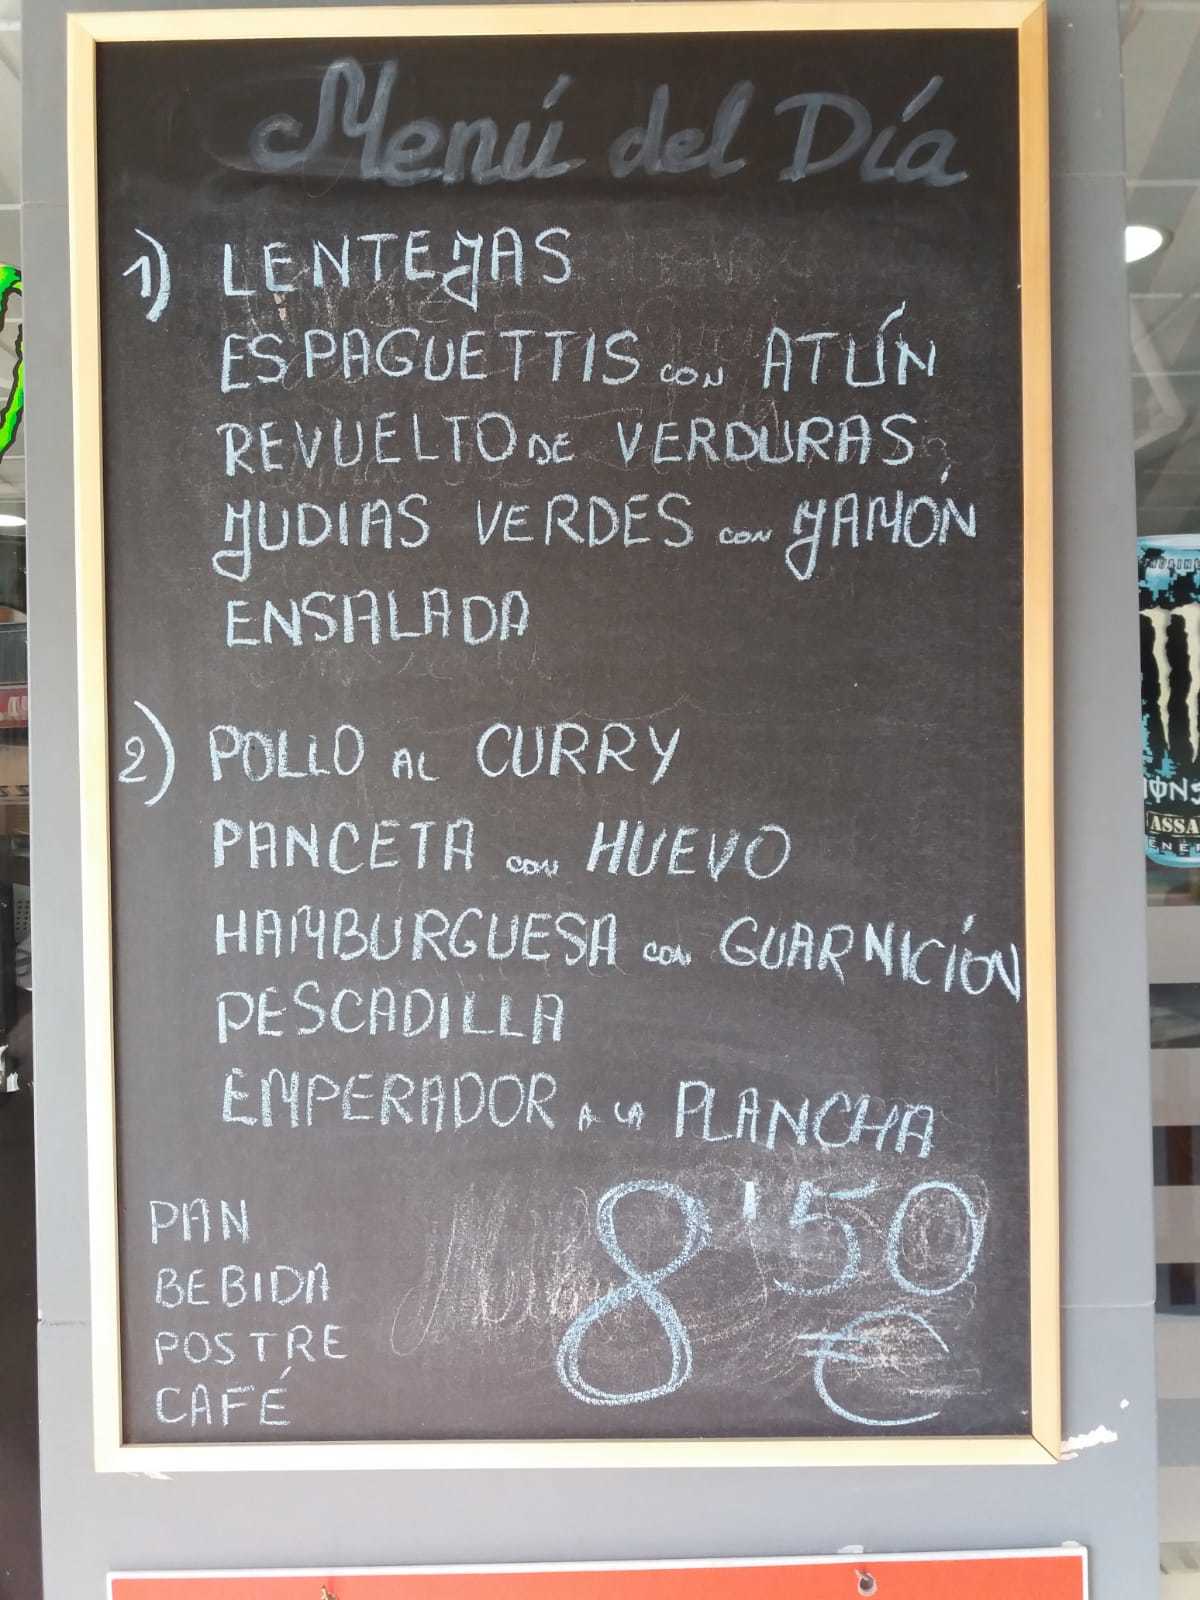 Menú del Día
1) LENTEJAS
ESPAGUETTIS CON ATÚN
REVUELTO DE VERDURAS
JUDIAS VERDES CON JAMÓN
ENSALADA
2) POLLO AL CURRY
PANCETA CON HUEVO
HAMBURGUESA CON GUARNICIÓN
PESCADILLA
EMPERADOR A LA PLANCHA
PAN
BEBIDA
POSTRE
CAFÉ
8'50
€